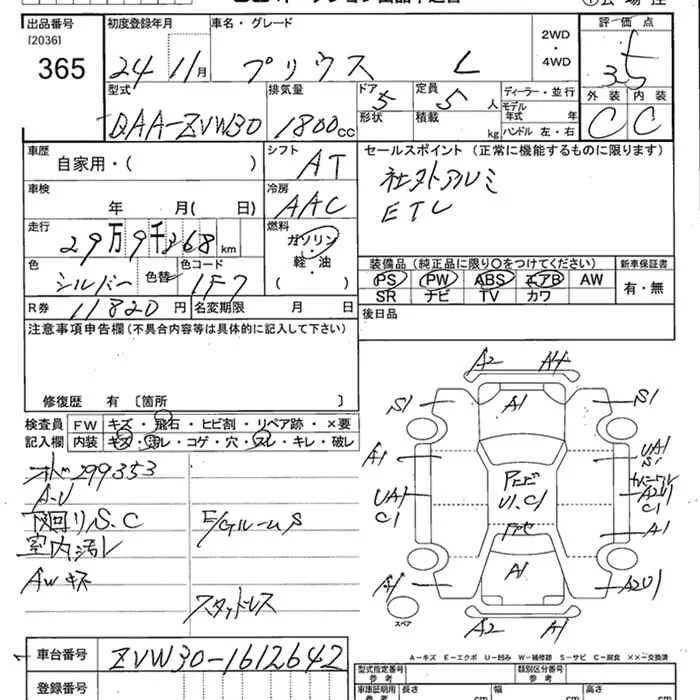 出品番号 初度登録年月 車名・グレード 評価点
[2036]
365
24 11月 プリウス L 2WD・4WD 3.5
型式 排気量 ドア 定員 ディーラー・並行 外装 内装
DAA-ZVW30 1800cc 5 5人 モデル年式 年 C C
形状 積載 kg ハンドル 左・右
車歴 シフト セールスポイント(正常に機能するものに限ります)
自家用・( ) AT 社外アルミ
車検 冷房 ETC
年 月( 日) AAC
走行 燃料
29万9千368km ガソリン・軽・油
( )
色 色替 色コード 装備品(純正品に限り○をつけてください) 新車保証書
シルバー 1F7 PS PW ABS エアB AW 有・無
SR ナビ TV カワ
R券 11820円 名変期限 月 日 後日品
注意事項申告欄(不具合内容等は具体的に記入して下さい)
修復歴 有 〔箇所 〕
検査員記入欄 FW キズ・飛石・ヒビ割・リペア跡・×要
内装 キズ・汚レ・コゲ・穴・スレ・キレ・破レ
299353
下回りS.C
室内汚レ
AWキズ
スタッドレス
A2 A4
S1 A1 S1
A1 UA1
S1
UA1 U1.C1 A2U1
C1 C1
A1
A1 A1 A2U1
スペア A2 A1
A-キズ E-エクボ U-凹み W-補修跡 S-サビ C-腐食 ××-交換済
車台番号 ZVW30-1612642
登録番号
型式指定番号 参考 類別区分番号 参考
車検証明用 参考 長さ cm 幅 cm 高さ cm